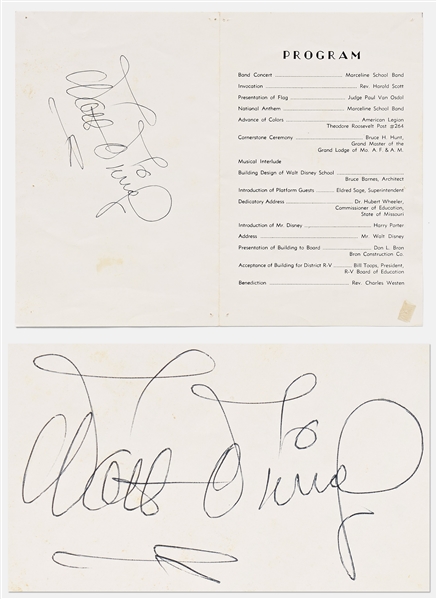 Walt Disney
PROGRAM
Band Concert ........ Marceline School Band
Invocation ........ Rev. Harold Scott
Presentation of Flag ........ Judge Paul Van Osdol
National Anthem ........ Marceline School Band
Advance of Colors ........ American Legion
Theodore Roosevelt Post #264
Cornerstone Ceremony ........ Bruce H. Hunt,
Grand Master of the
Grand Lodge of Mo. A. F. & A. M.
Musical Interlude
Building Design of Walt Disney School ........
Bruce Barnes, Architect
Introduction of Platform Guests ........ Eldred Sage, Superintendent
Dedicatory Address ........ Dr. Hubert Wheeler,
Commissioner of Education,
State of Missouri
Introduction of Mr. Disney ........ Harry Porter
Address ........ Mr. Walt Disney
Presentation of Building to Board ........ Don L. Bron
Bron Construction Co.
Acceptance of Building for District R-V ........ Bill Toops, President,
R-V Board of Education
Benediction ........ Rev. Charles Westen
Walt Disney